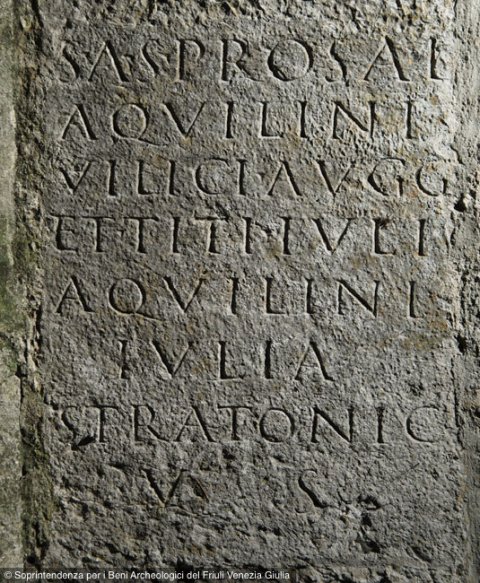 SA·S·PROSAL
AQVILINI
VILICI·AVGG
ET·TITI·IVLI
AQVILINI
IVLIA
STRATONIC
V S
© Soprintendenza per i Beni Archeologici del Friuli Venezia Giulia